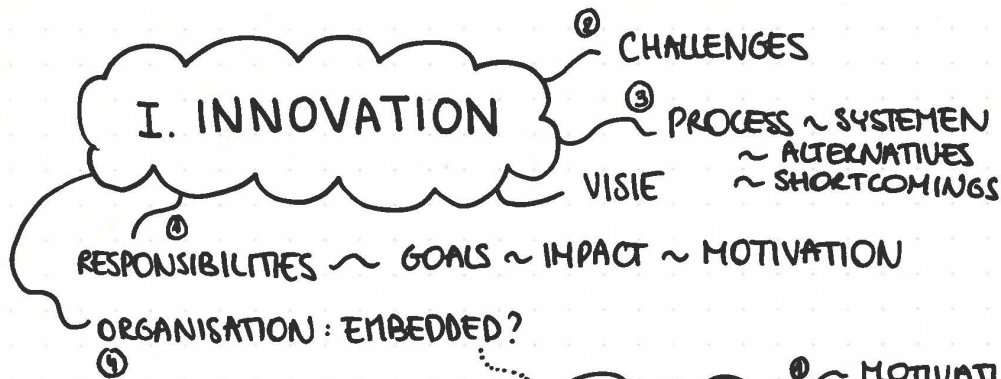 ② CHALLENGES
I. INNOVATION
③ PROCESS ~ SYSTEMEN
~ ALTERNATIVES
~ SHORTCOMINGS
VISIE
①
RESPONSIBILITIES ~ GOALS ~ IMPACT ~ MOTIVATION
ORGANISATION : EMBEDDED?
④
① ~ MOTIVATI